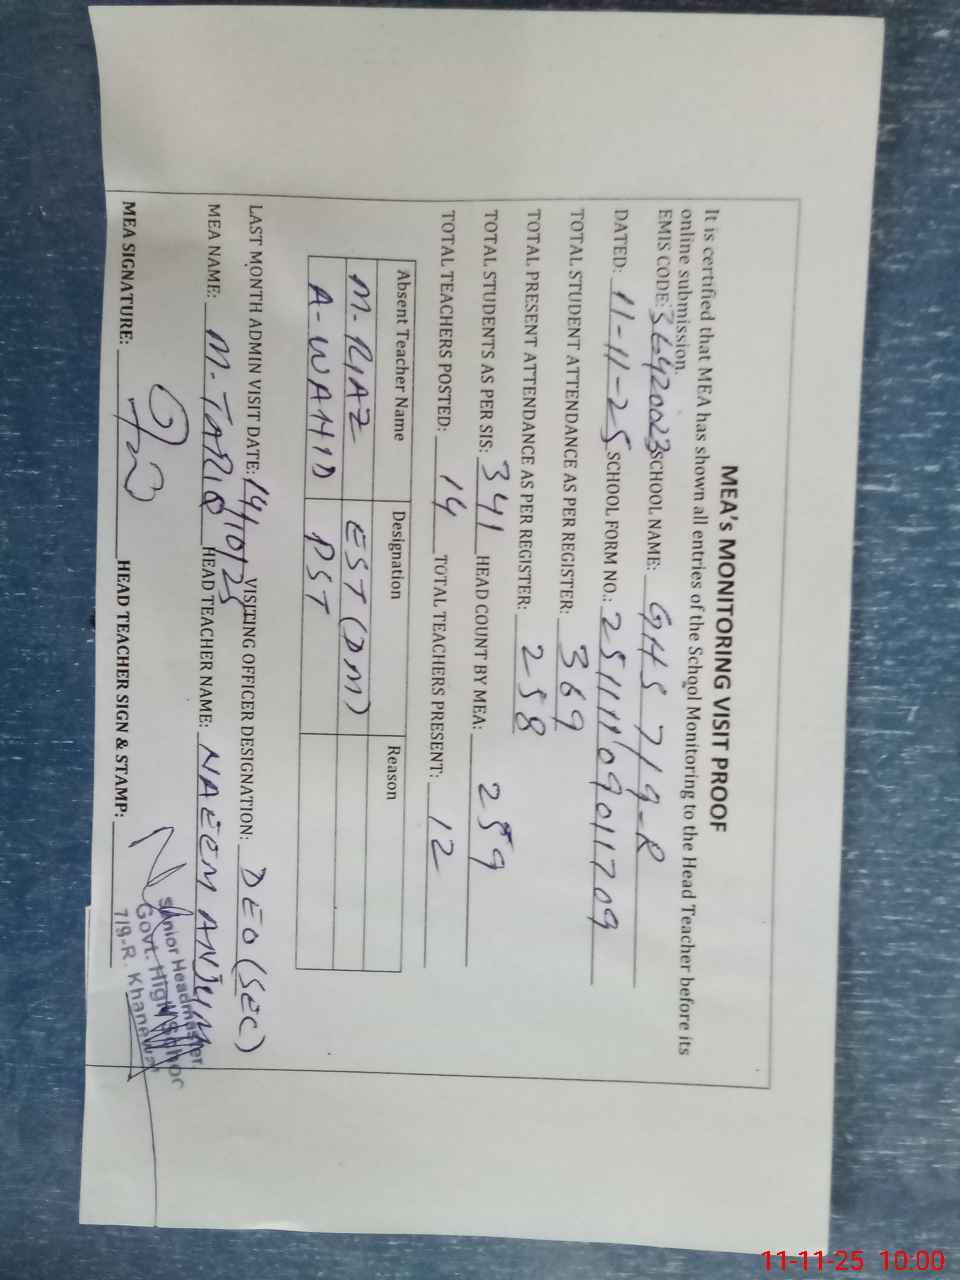 MEA's MONITORING VISIT PROOF
It is certified that MEA has shown all entries of the School Monitoring to the Head Teacher before its
online submission.
EMIS CODE: 36420023 SCHOOL NAME: GHS 7/9-R
DATED: 11-11-25 SCHOOL FORM NO.: 25111109011709
TOTAL STUDENT ATTENDANCE AS PER REGISTER: 369
TOTAL PRESENT ATTENDANCE AS PER REGISTER: 258
TOTAL STUDENTS AS PER SIS: 341 HEAD COUNT BY MEA: 259
TOTAL TEACHERS POSTED: 14 TOTAL TEACHERS PRESENT: 12
Absent Teacher Name Designation Reason
M-RIAZ EST (DM)
A-WAHID PST
LAST MONTH ADMIN VISIT DATE: 14/10/25 VISITING OFFICER DESIGNATION: DEO (SEC)
MEA NAME: M-TARIQ HEAD TEACHER NAME: NAEEM ANJUM
MEA SIGNATURE: HEAD TEACHER SIGN & STAMP:
Senior Headmaster
Govt. High School
7/9-R. Khanewal
11-11-25 10:00